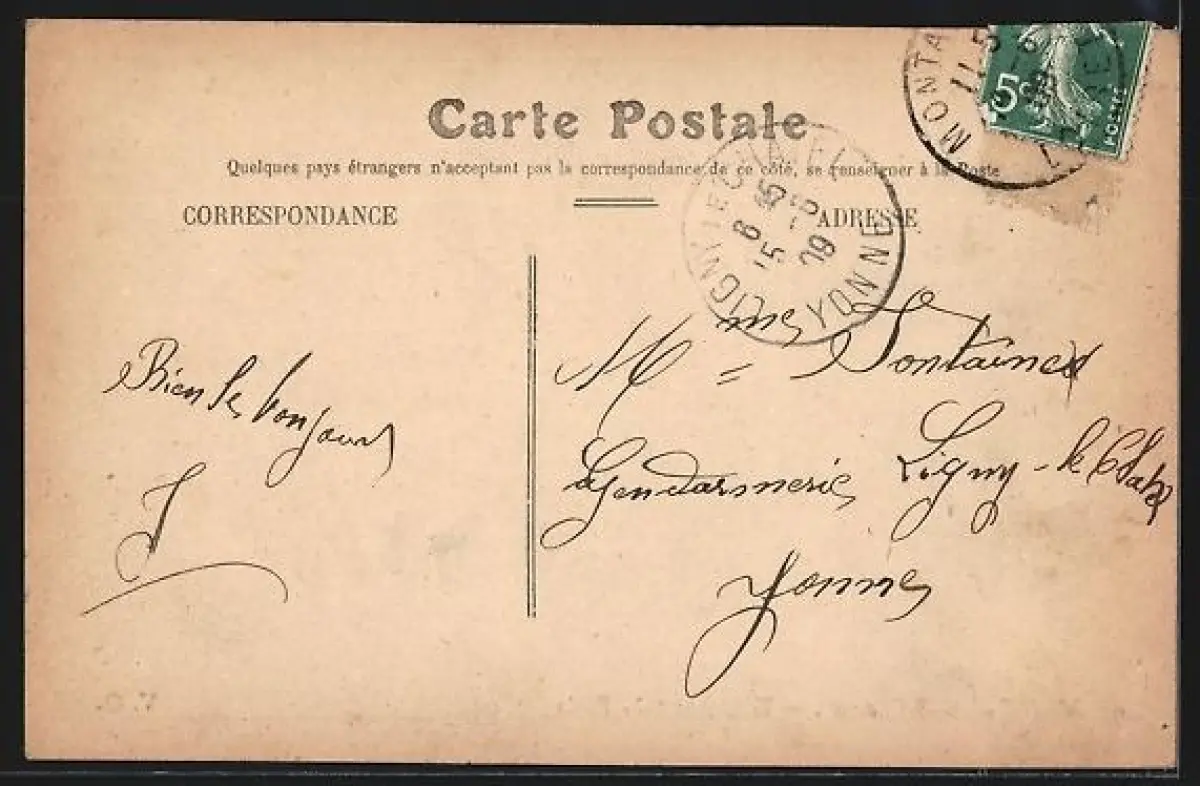 Carte Postale
Quelques pays étrangers n'acceptant pas la correspondance de ce côté, se renseigner à la Poste
CORRESPONDANCE
ADRESSE
MONTA
11
5c
POSTES
LIGNY LE CHATEL
8 45
5 -6
09
YONNE
Bien le bonjour
J
Mme Fontaine
Gendarmerie Ligny-le Chatel
Yonne
V.O.